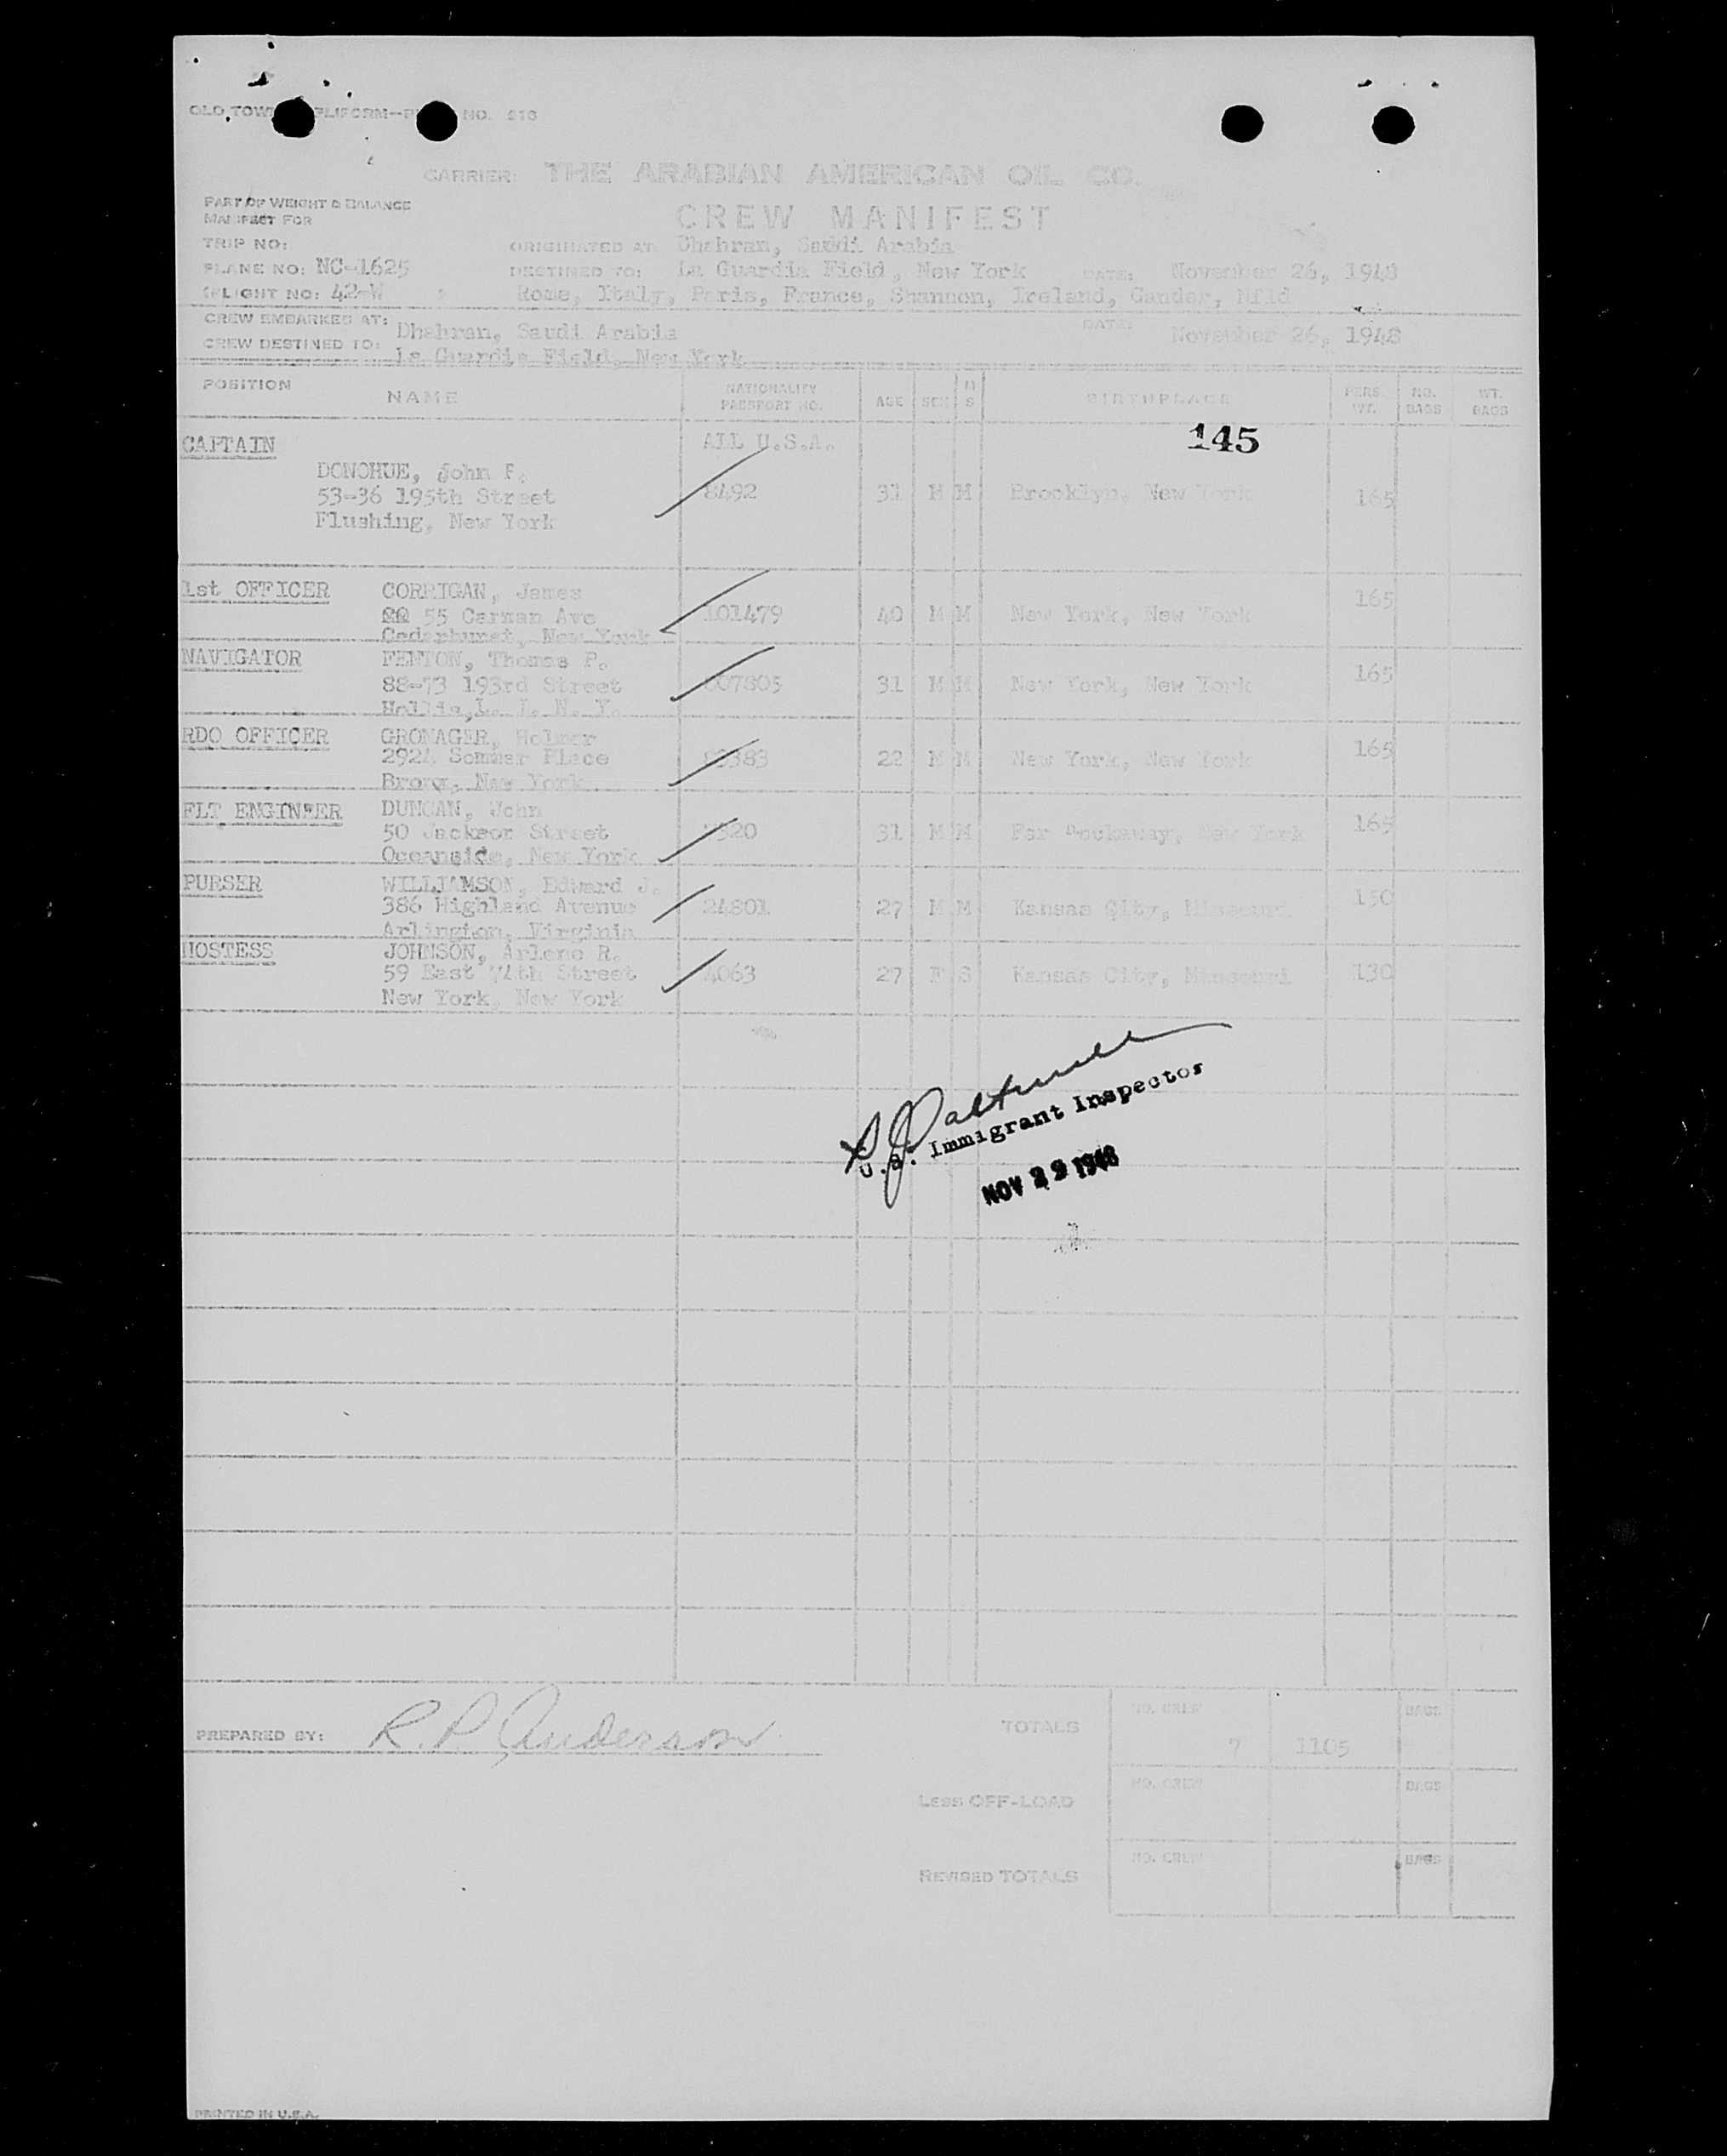 OLD TOWN NO. 218
CARRIER: THE ARABIAN AMERICAN OIL CO.
PART OF WEIGHT & BALANCE
MANIFEST FOR
CREW MANIFEST
TRIP NO: ORIGINATED AT Dhahran, Saudi Arabia
PLANE NO: NC-1625 DESTINED TO: La Guardia Field, New York DATE: November 26, 1948
FLIGHT NO: 42-W Rome, Italy, Paris, France, Shannon, Ireland, Gander, Nfld
CREW EMBARKED AT: Dhahran, Saudi Arabia DATE: November 26, 1948
CREW DESTINED TO: La Guardia Field, New York
POSITION NAME NATIONALITY PASSPORT NO. AGE SEX M S BIRTHPLACE PERS. WT. NO. BAGS WT. BAGS
CAPTAIN ALL U.S.A. 145
DONOHUE, John F.
53-36 195th Street 8492 31 M M Brooklyn, New York 165
Flushing, New York
1st OFFICER CORRIGAN, James 165
55 Carman Ave 101479 40 M M New York, New York
Cedarhurst, New York
NAVIGATOR FENTON, Thomas P. 165
88-73 193rd Street 31 M M New York, New York
Hollis, L. I. N. Y.
RDO OFFICER GRONAGER, Holmer 165
2924 Sommer Place 22 M M New York, New York
Bronx, New York
FLT ENGINEER DUNCAN, John 165
50 Jackson Street 31 M M Far Rockaway, New York
Oceanside, New York
PURSER WILLIAMSON, Edward J. 150
386 Highland Avenue 24801 27 M M Kansas City, Missouri
Arlington, Virginia
HOSTESS JOHNSON, Arlene R.
59 East 74th Street 4063 27 F S Kansas City, Missouri 130
New York, New York
U.S. Immigrant Inspector
NOV 29 1948
PREPARED BY: R.P. Anderson
TOTALS NO. CREW 7 1105 BAGS
LESS OFF-LOAD NO. CREW BAGS
REVISED TOTALS NO. CREW BAGS
PRINTED IN U.S.A.